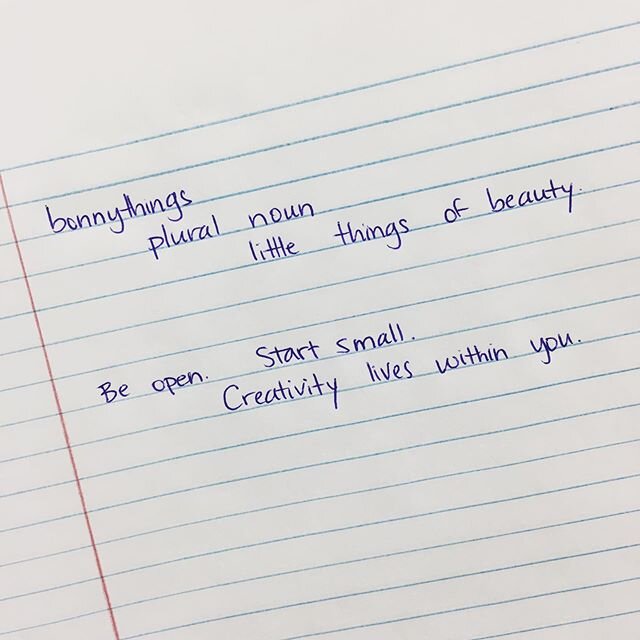 bonnythings
plural noun
little things of beauty.
Be open. Start small.
Creativity lives within you.